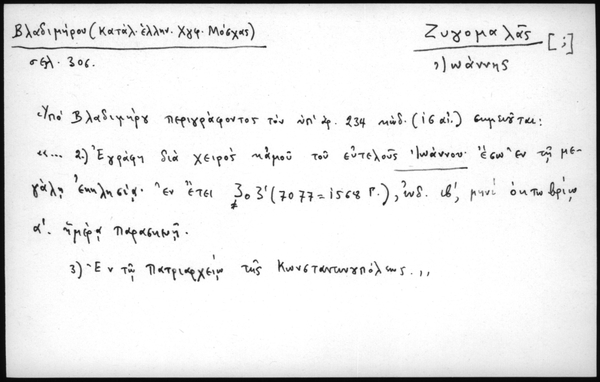 Βλαδιμήρου (Κατάλ. ἑλλην. Χγφ. Μόσχας)
σελ. 306.
Ζυγομαλᾶς [;]
Ἰωάννης
Ὑπὸ Βλαδιμήρου περιγράφοντος τὸν ὑπ' ἀρ. 234 κώδ. (ις αἰ.) σημειοῦται:
«... 2.) Ἐγράφη διὰ χειρὸς κἀμοῦ τοῦ εὐτελοῦς Ἰωάννου ἔσωθεν τῇ με-
γάλῃ ἐκκλησίᾳ· ἐν ἔτει ͵ζοζ' (7077 = 1568 Γ.), ἰνδ. ιβ', μηνὶ ὀκτωβρίῳ
α'. ἡμέρᾳ παρασκευῇ.
3) Ἐν τῷ Πατριαρχείῳ τῆς Κωνσταντινουπόλεως.,,